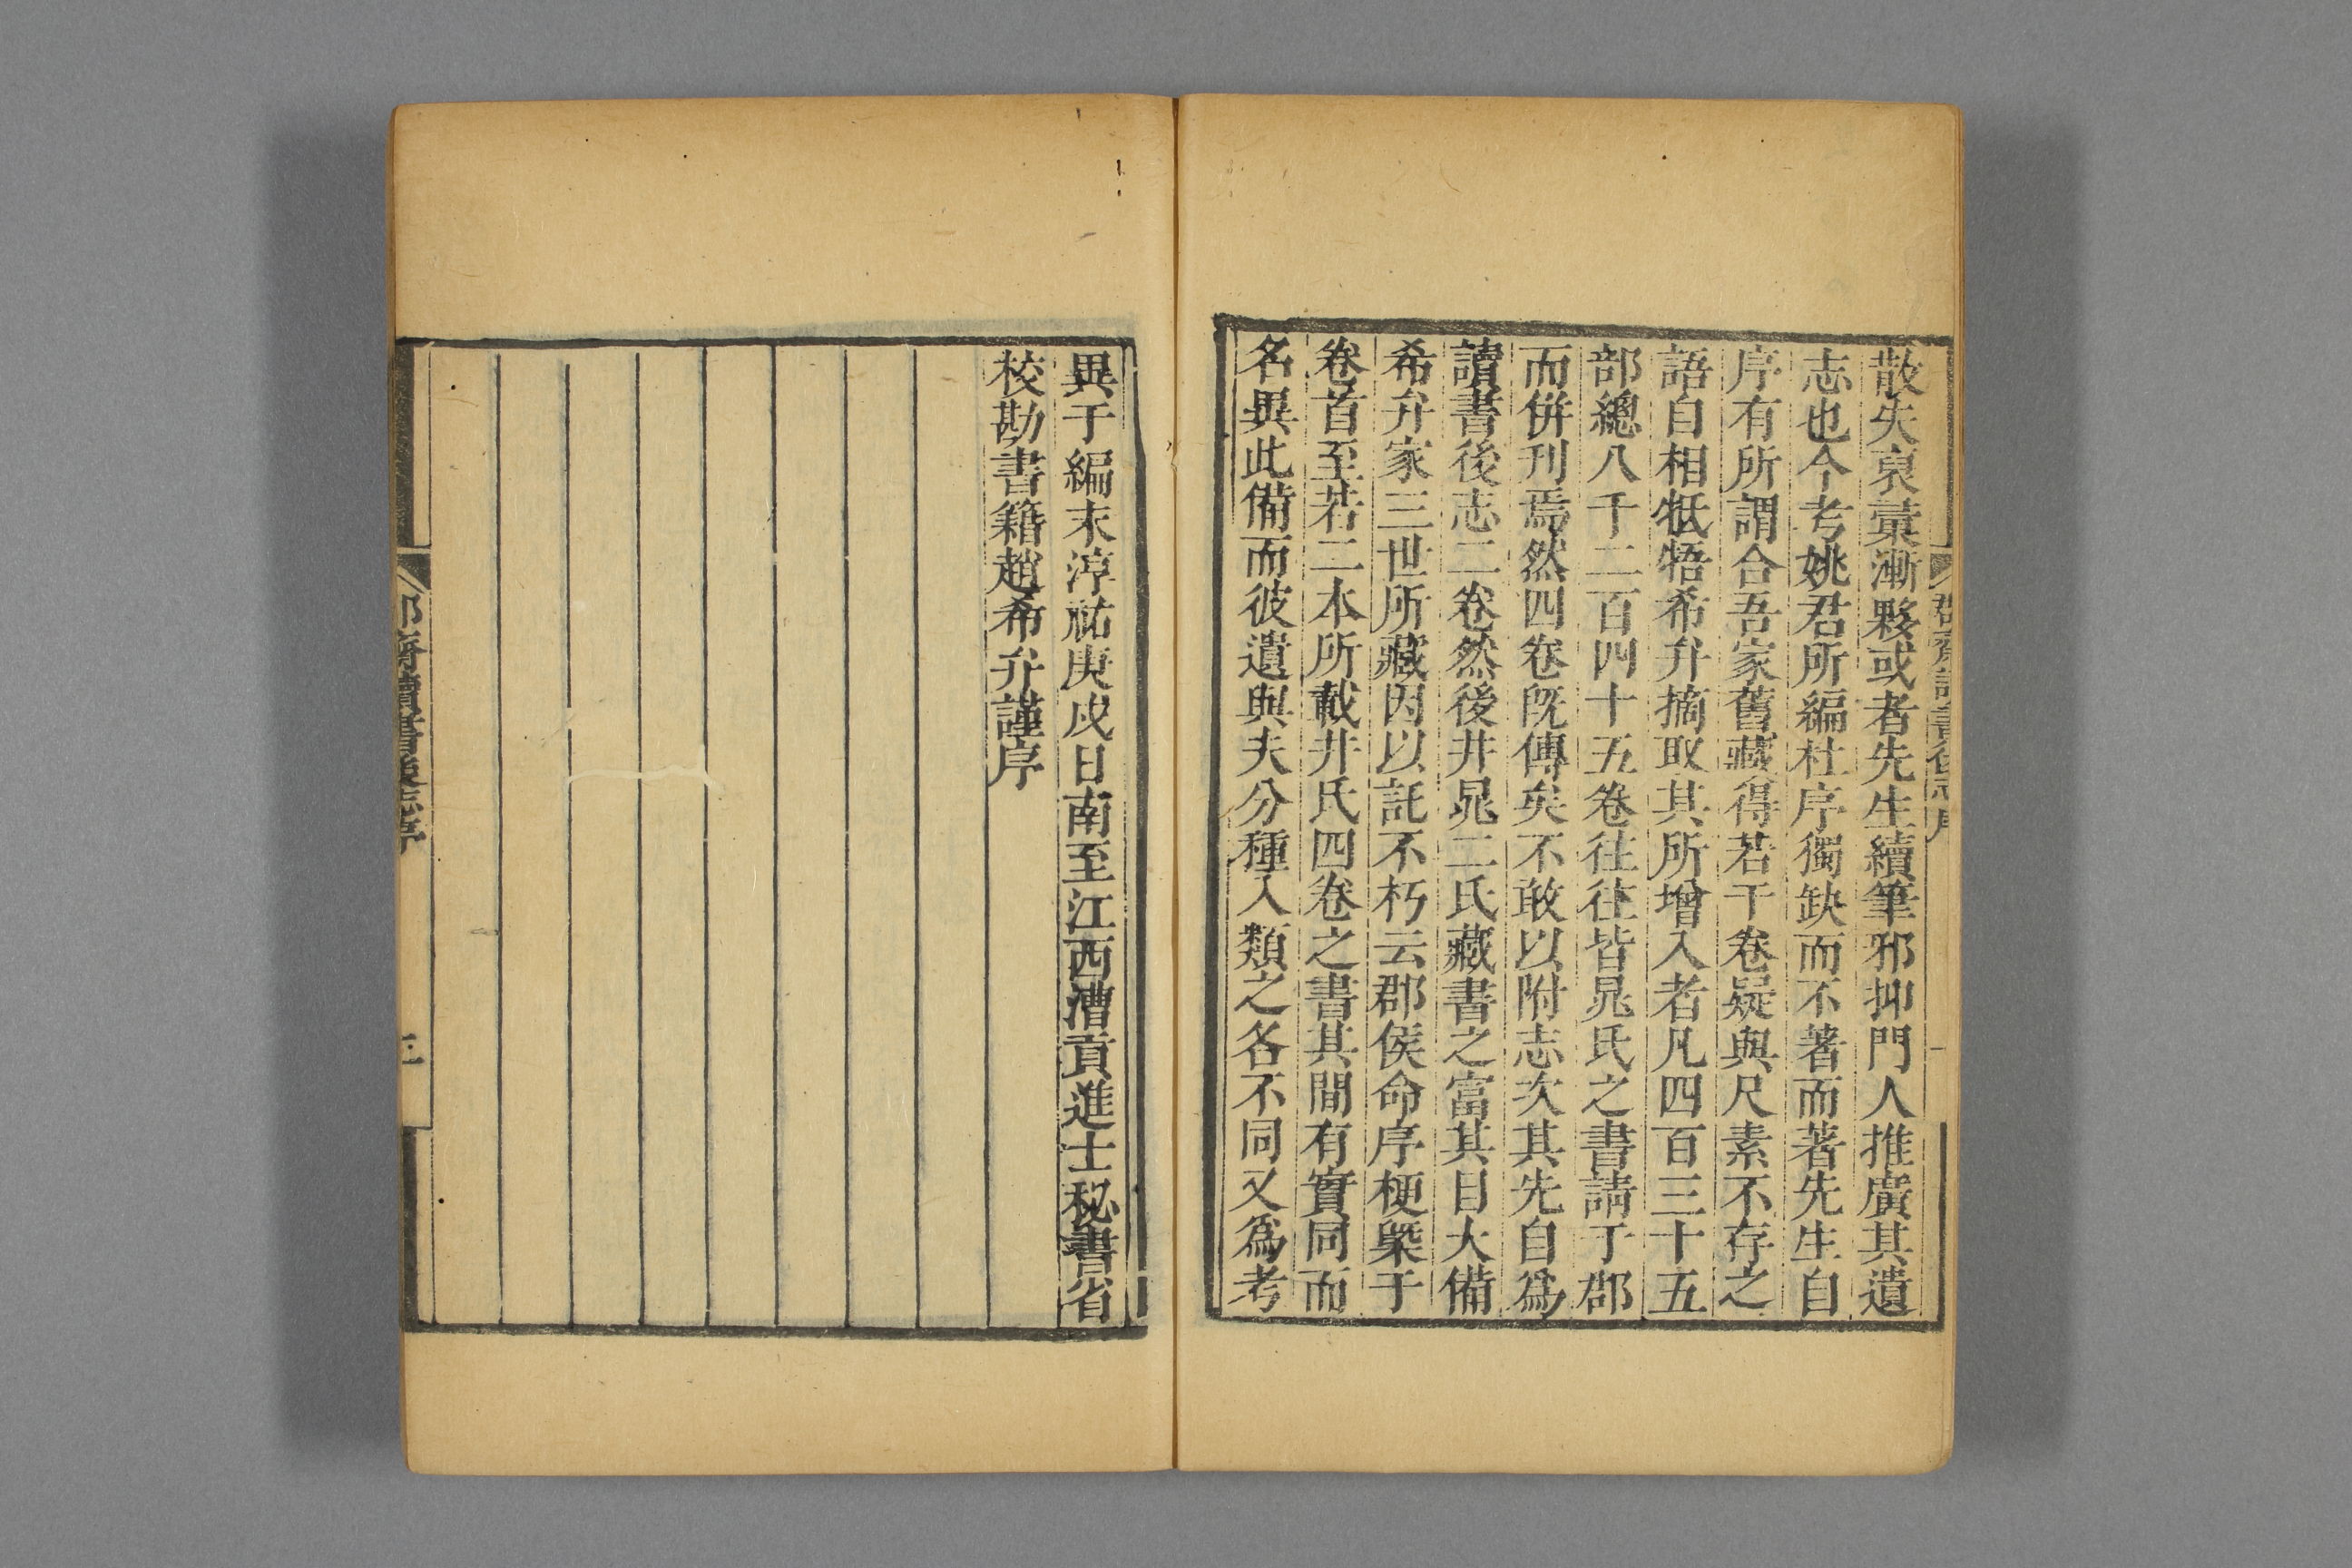 散失裒彚漸夥或者先生續筆邪抑門人推廣其遺
志也今考姚君所編杜序獨缺而不著而著先生自
序有所謂合吾家舊藏得若干卷疑與尺素不存之
語自相牴牾希弁摘取其所增入者凡四百三十五
部總八千二百四十五卷往往皆晁氏之書請于郡
而倂刊焉然四卷既傳矣不敢以附志次其先自爲
讀書後志二卷然後井晁二氏藏書之富其目大備
希弁家三世所藏因以託不朽云郡侯命序梗槩于
卷首至若二本所載井氏四卷之書其間有實同而
名異此備而彼遺與夫分種入類之各不同又爲考
異于編末淳祐庚戌日南至江西漕貢進士秘書省
校勘書籍趙希弁謹序
郡齋讀書後志序
三